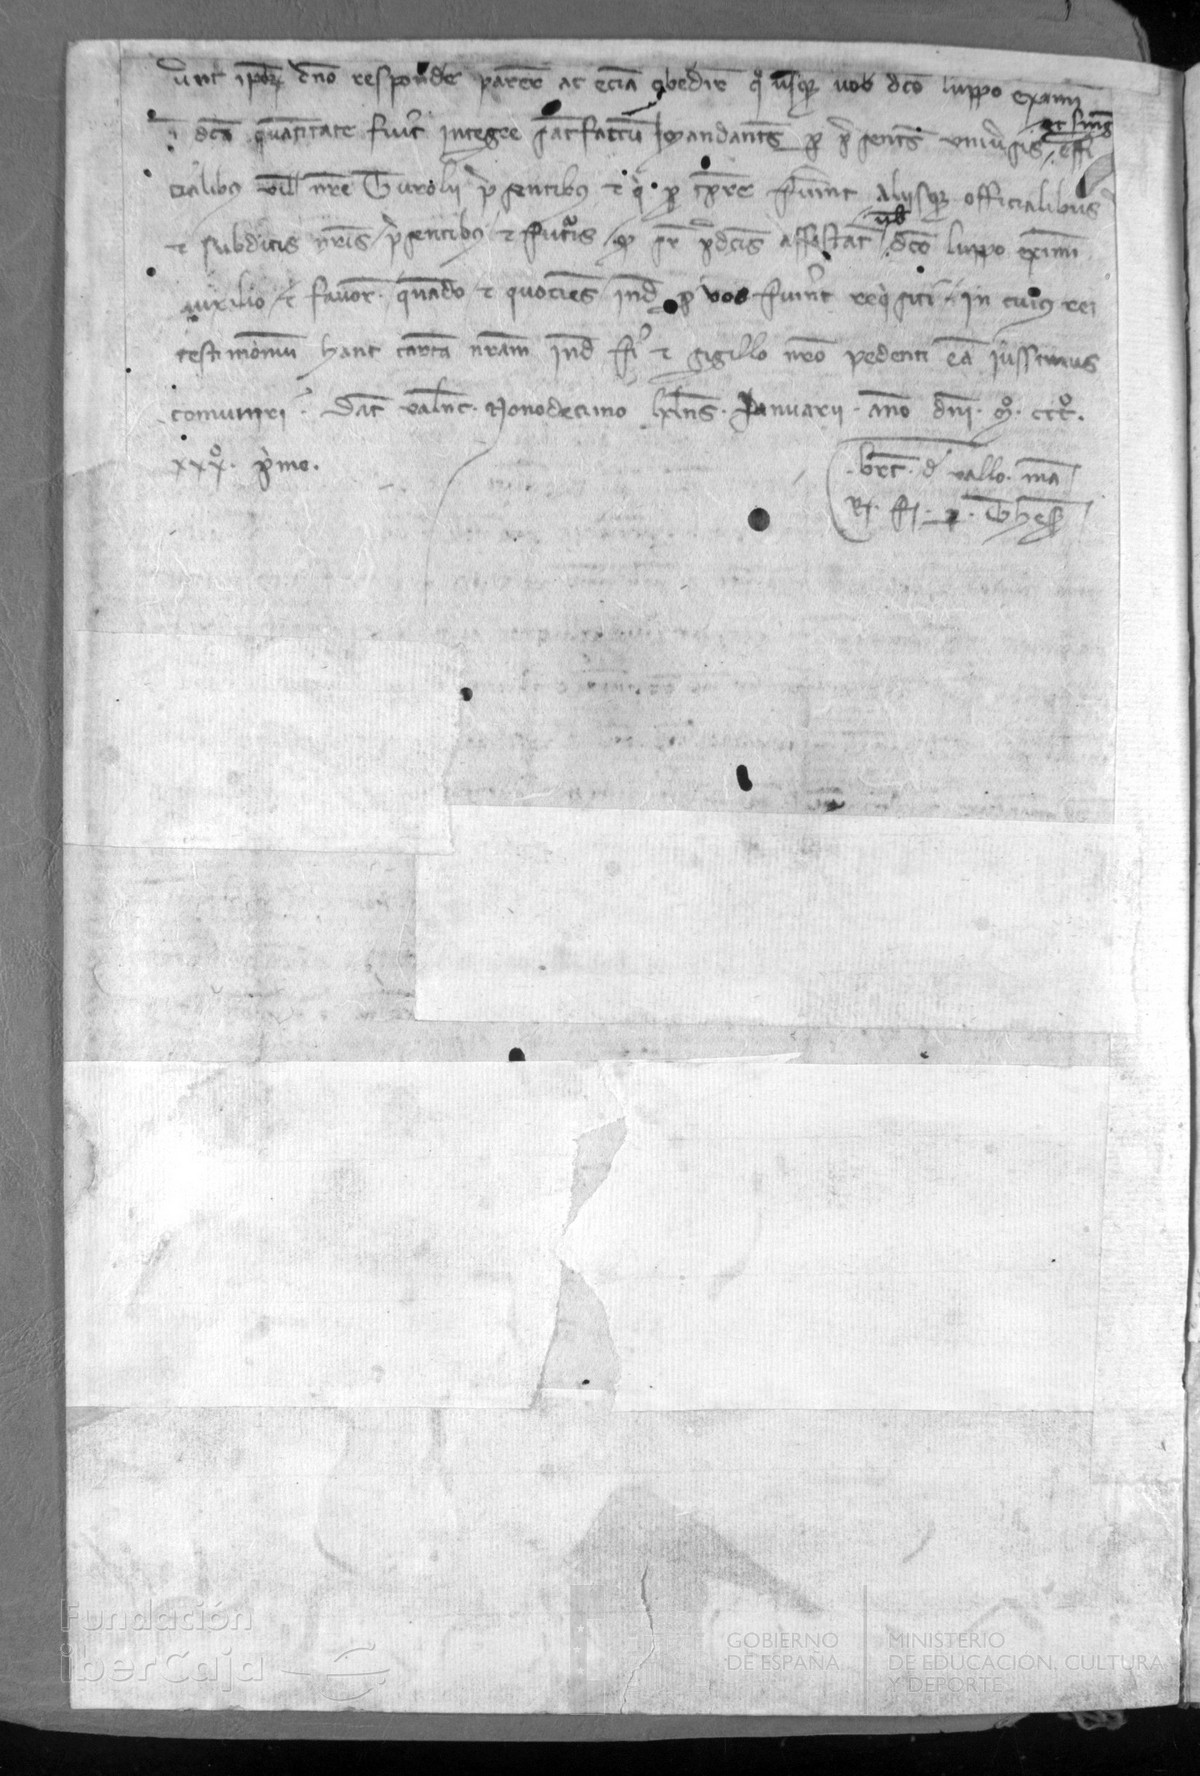 ipoȝ dno responde parere ac ecia obedire qo usqȝ vob dco luppo exami
i dca quantitate fuit integre satisfactu mandants p psents univsis ac sing offi
cialibȝ ville nre Turolii psentibȝ et qi p tpre fuint aliisqȝ officialibus
et subditis nris psentibȝ et futuris qd sr pdcis assistat vob dco luppo eximi
auxilio et favor quando et quociens ind p vos fuint reqisiti in cuius rei
testimoniu hanc carta nram ind fi et sigillo nro pedenti ea iussimus
comuniri. Dat valnc. Nonodecimo klns. Januarii. Ano dni. mo. ccco.
xxxo. primo.
brt. d vallo. ma
Rx. fi. . Thes
Fundación
iberCaja
GOBIERNO
DE ESPAÑA
MINISTERIO
DE EDUCACIÓN, CULTURA
Y DEPORTE